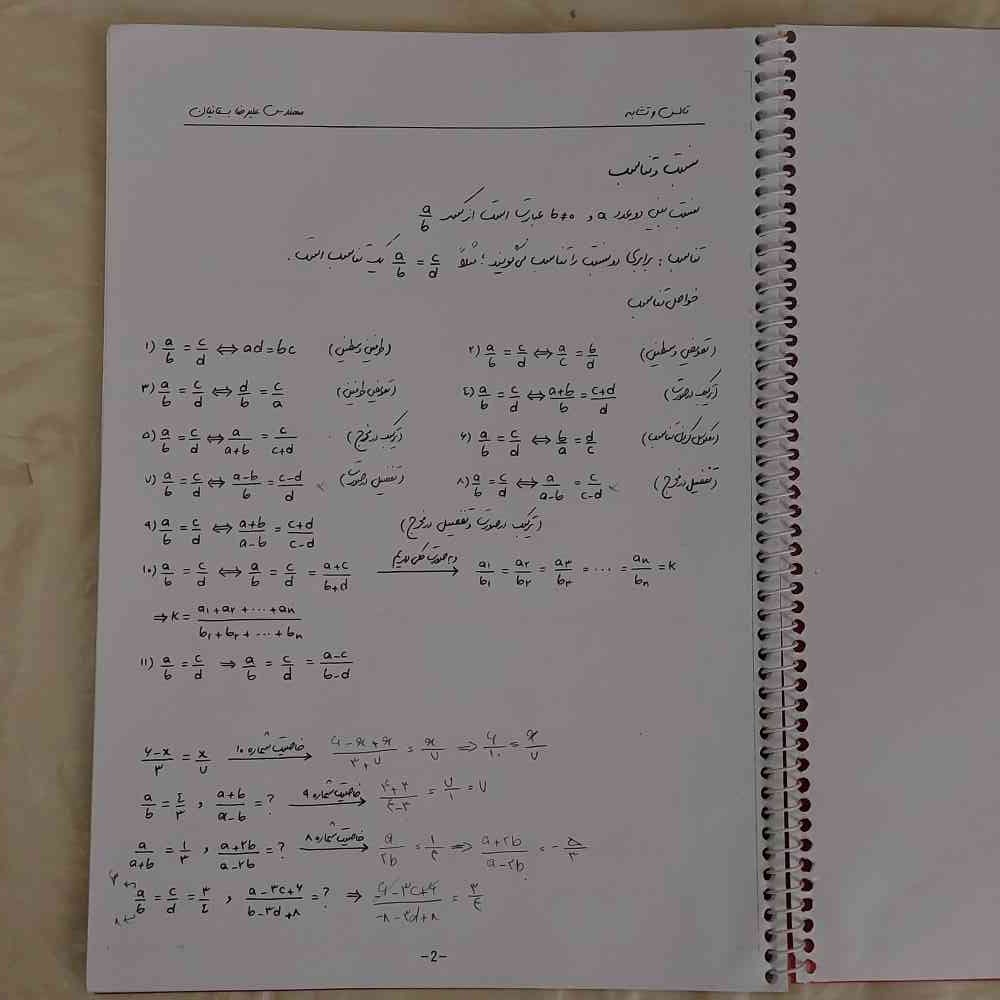 تالس و تشابه مهندس علیرضا بستانیان
نسبت و تناسب
نسبت بین دو عدد a و b≠۰ عبارت است از کسر a/b
تناسب : برابری دو نسبت را تناسب می‌گویند ؛ مثلاً a/b = c/d یک تناسب است .
خواص تناسب
۱) a/b = c/d ⇔ ad=bc (طرفین وسطین) ۲) a/b = c/d ⇔ a/c = b/d (تعویض وسطین)
۳) a/b = c/d ⇔ d/b = c/a (تعویض طرفین) ٤) a/b = c/d ⇔ a+b/b = c+d/d (ترکیب در صورت)
۵) a/b = c/d ⇔ a/a+b = c/c+d (ترکیب در مخرج) ۶) a/b = c/d ⇔ b/a = d/c (معکوس کردن تناسب)
۷) a/b = c/d ⇔ a-b/b = c-d/d (تفضیل در صورت) ۸) a/b = c/d ⇔ a/a-b = c/c-d (تفضیل در مخرج)
۹) a/b = c/d ⇔ a+b/a-b = c+d/c-d (ترکیب در صورت و تفضیل در مخرج)
۱۰) a/b = c/d ⇔ a/b = c/d = a+c/b+d در صورت کلی داریم → a۱/b۱ = a۲/b۲ = a۳/b۳ = ... = an/bn = K
⇒ K = a۱+a۲+...+an/b۱+b۲+...+bn
۱۱) a/b = c/d ⇒ a/b = c/d = a-c/b-d
۶-x/۳ = x/۷ خاصیت شماره ۱۰ → ۶-x+x/۳+۷ = x/۷ ⇒ ۶/۱۰ = x/۷
a/b = ٤/۳ , a+b/a-b = ? خاصیت شماره ۹ → ۴+۳/۴-۳ = ۷/۱ = ۷
a/a+b = ۱/۳ , a+۲b/a-۲b = ? خاصیت شماره ۸ → a/۲b = ۱/۴ ⇒ a+۲b/a-۲b = -۵/۳
a/b = c/d = ۳/٤ , a-۳c+۶/b-۳d+۸ = ? ⇒ = ۳/۴
-2-